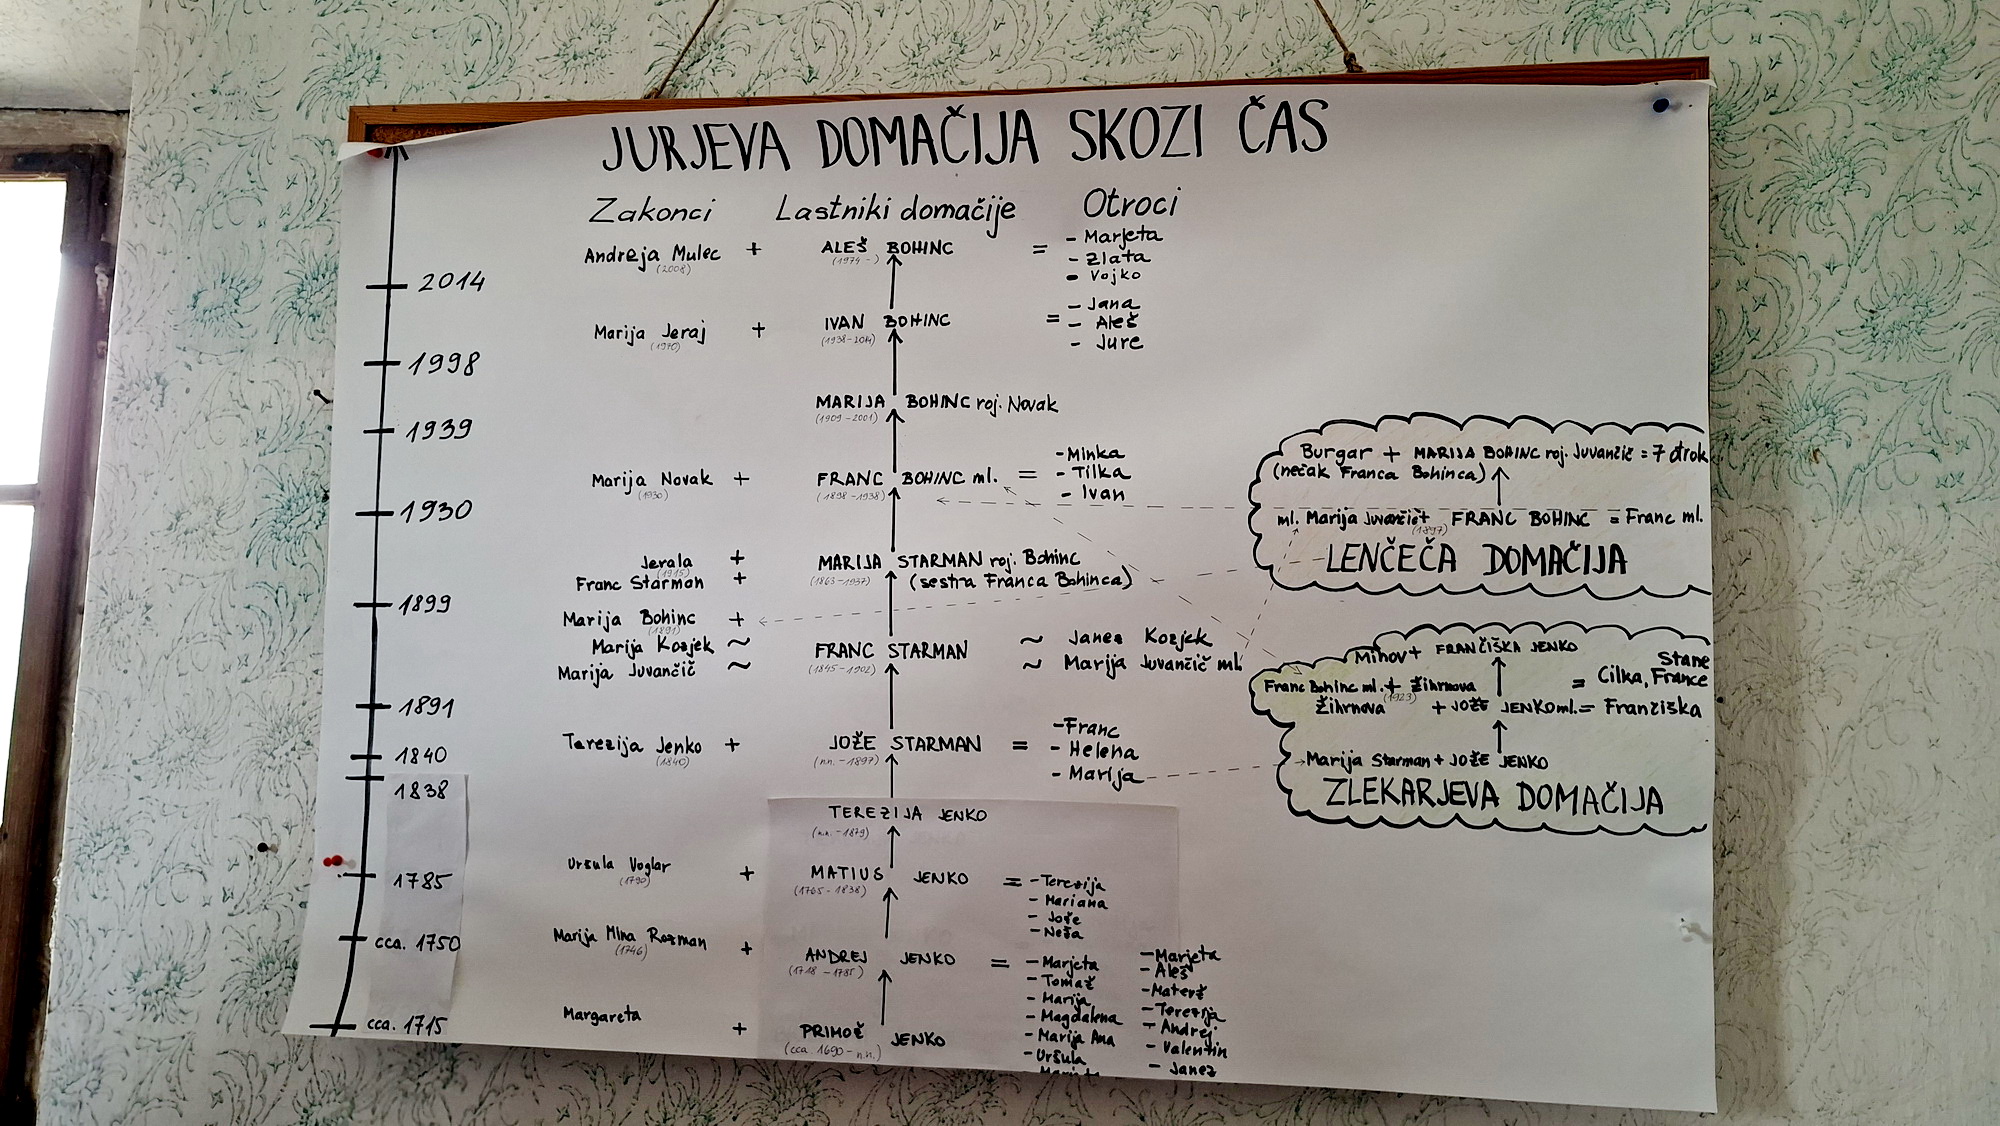 JURJEVA DOMAČIJA SKOZI ČAS
Zakonci Lastniki domačije Otroci
Andreja Mulec + ALEŠ BOHINC = - Marjeta
(2008) (1974- ) - Zlata
- Vojko
2014
Marija Jeraj + IVAN BOHINC = - Jana
(1970) (1938-2014) - Aleš
- Jure
1998
MARIJA BOHINC roj. Novak
(1909-2001)
1939
Marija Novak + FRANC BOHINC ml. = - Minka
(1930) (1898-1938) - Tilka
- Ivan
1930
Jerala + MARIJA STARMAN roj. Bohinc
(1915) (1863-1937) (sestra Franca Bohinca)
Franc Starman +
1899
Marija Bohinc +
(1891)
Marija Kozjek ~ FRANC STARMAN ~ Janez Kozjek
Marija Juvančič ~ (1845-1902) ~ Marija Juvančič ml.
1891
Terezija Jenko + JOŽE STARMAN = - Franc
(1840) (n.n.-1897) - Helena
- Marija
1840
1838
TEREZIJA JENKO
(n.n.-1879)
Uršula Voglar + MATIUS JENKO = - Terezija
(1790) (1765-1838) - Mariana
- Jože
- Neža
1785
Marija Mina Rozman + ANDREJ JENKO = - Marjeta - Marjeta
(1746) (1718-1785) - Tomaž - Aleš
- Marija - Matevž
- Magdalena - Terezija
- Marija Ana - Andrej
- Uršula - Valentin
- Janez
cca. 1750
Margareta + PRIMOŽ JENKO
(cca. 1690-n.n.)
cca. 1715
Burgar + MARIJA BOHINC roj. Juvančič = 7 otrok
(nečak Franca Bohinca)
ml. Marija Juvančič + FRANC BOHINC = Franc ml.
(1897)
LENČEČA DOMAČIJA
Mihov + FRANČIŠKA JENKO
Stane
Cilka, France
Franc Bohinc ml. + Žihrnova =
(1923)
Žihrnova + JOŽE JENKO ml. = Franziška
Marija Starman + JOŽE JENKO
ZLEKARJEVA DOMAČIJA